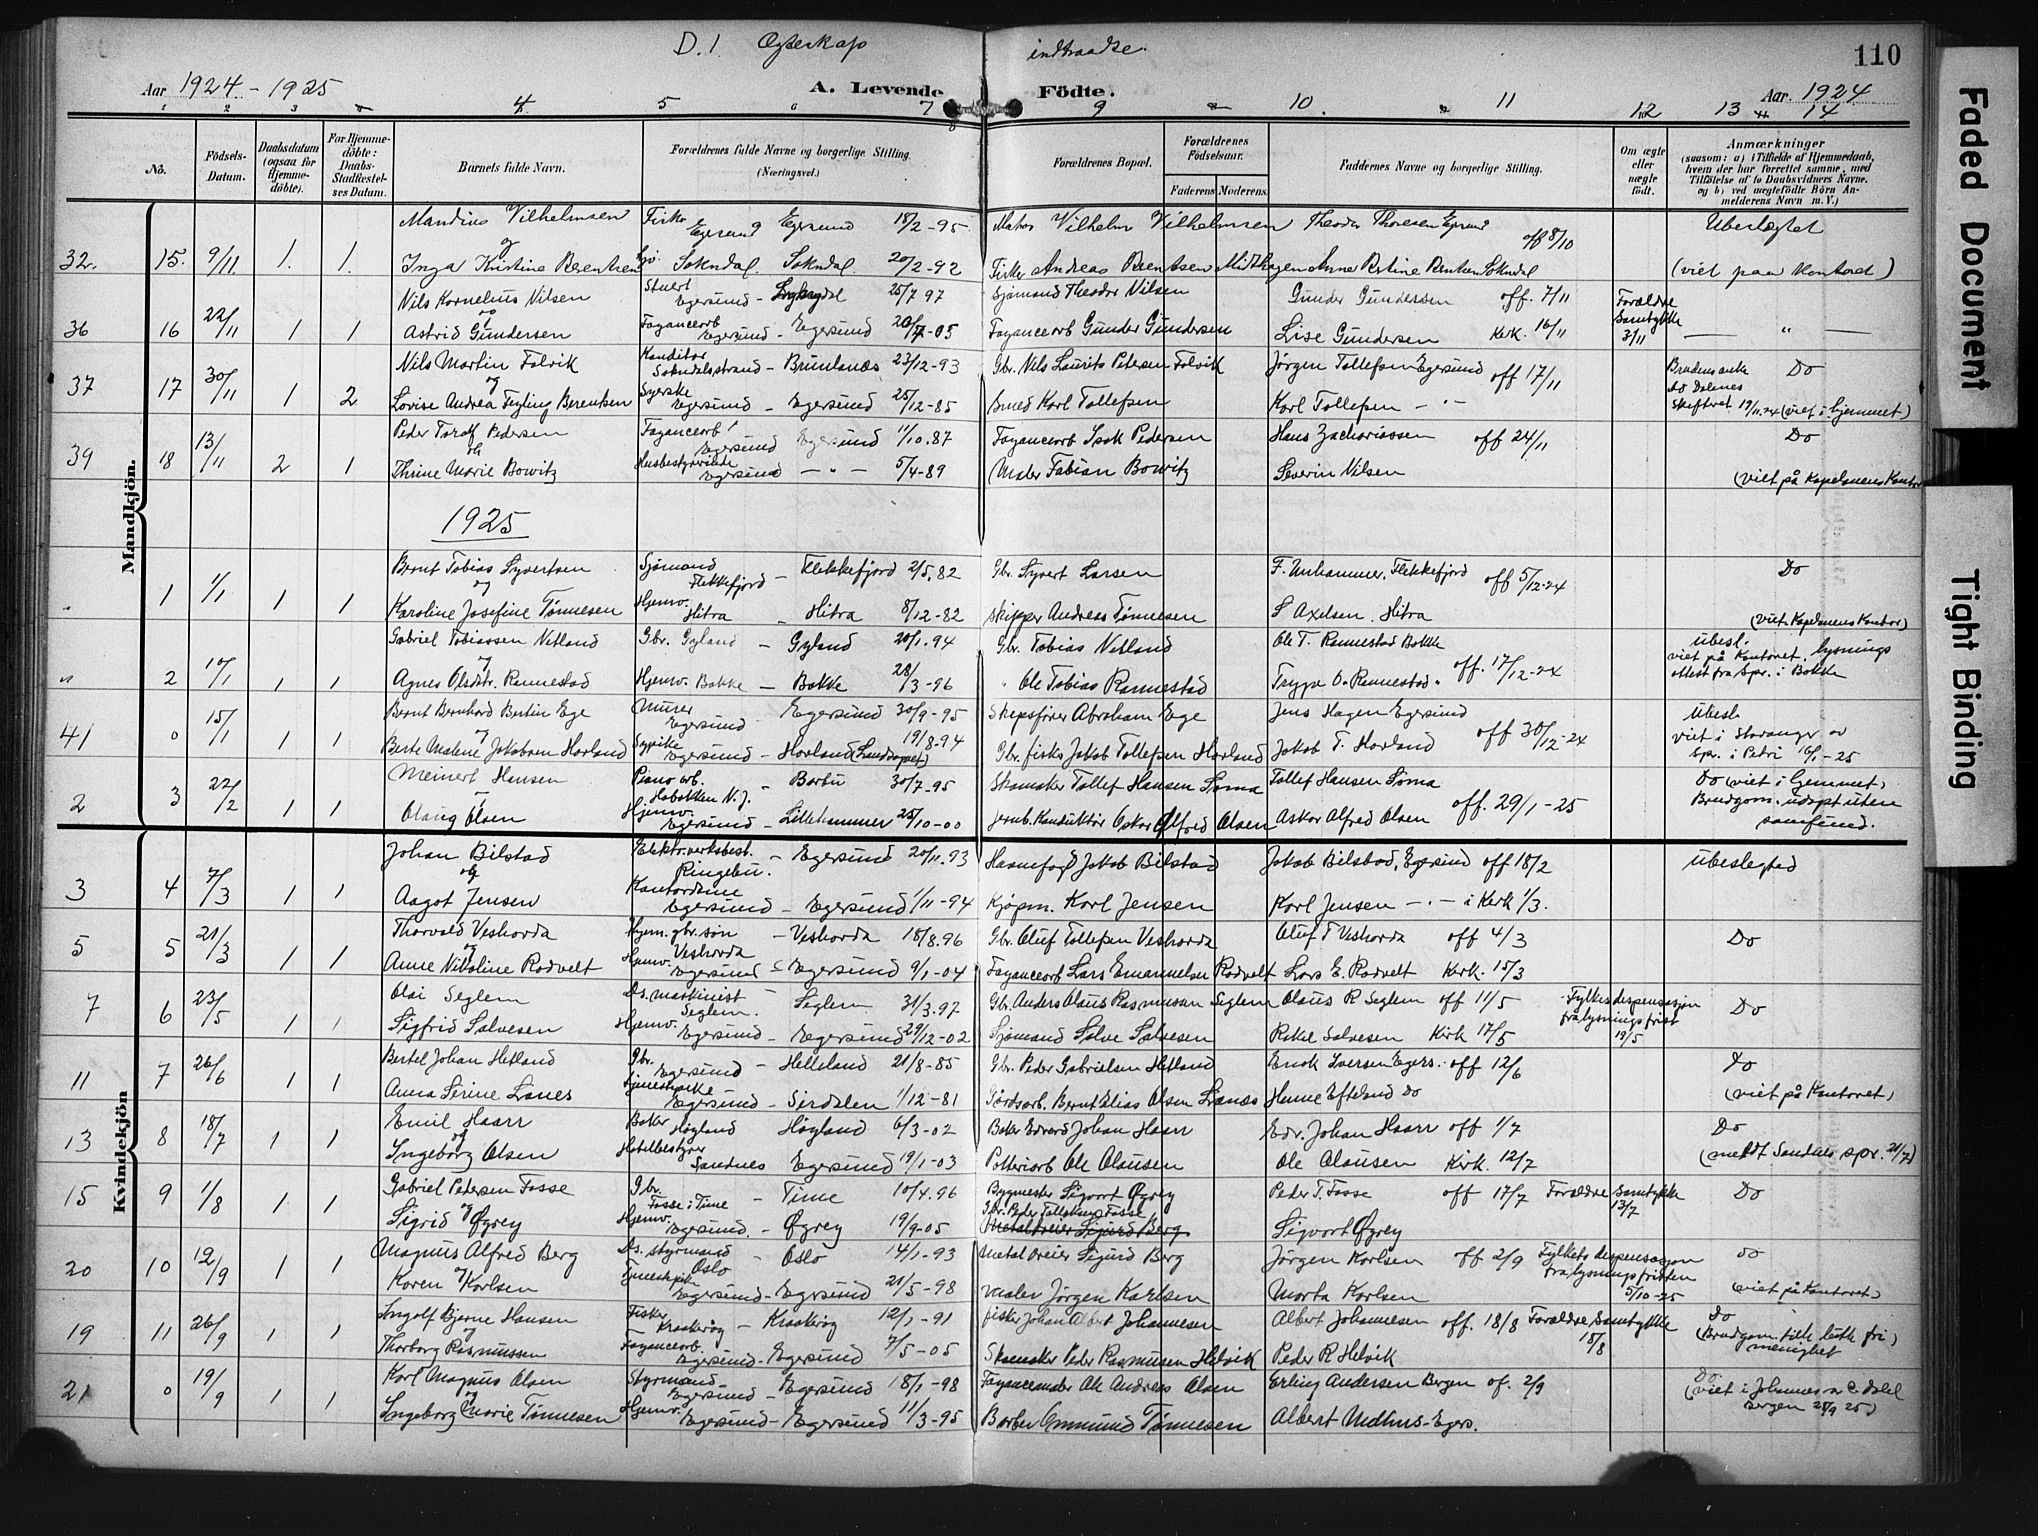 D. 1 Egteskap indtraadte.
110
Aar 1924. - 1925
A. Levende Födte.
Aar 1924
1 2 3 4. 5 7 8 9 10. 11 12 13 14
No.
Födsels-Datum.
Daabsdatum (ogsaa for Hjemme-döbte).
For Hjemme-döbte: Daabs-Stadfæstel-ses Datum.
Barnets fulde Navn.
Forældrenes fulde Navne og borgerlige Stilling. (Næringsvei.)
Forældrenes Bopæl.
Forældrenes Födselsaar.
Faderens
Moderens.
Faddernes Navne og borgerlige Stilling.
Om ægte eller uægte födt.
Anmærkninger
(saasom: a) i Tilfælde af Hjemmedaab, hvem der har forrettet samme, med Tilföielse af to Daabsvidners Navne, og b) ved uægtefödte Börn An-melderens Navn m. V.)
Mandkjön.
Mandius Vilhelmsen Fisker Egersund Egersund 18/2-95 Vilhelm Vilhelmsen Theodor Thorsen Egersund off 8/10 Ubeslægtet
32. 15. 9/11 1. 1. og
Inga Kristine Berentsen Sokndal. Sokndal. 20/2-92 Fisker Andreas Berentsen Midthagen Sokndal (viet paa Kontoret)
Nils Kornelius Nilsen Stuert Egersund 25/7 97 Sjömand Theodor Nilsen Gunder Gundersen off. 7/11 Forældre Samtykke 3/11
36 16 22/11 1 1 og
Astrid Gundersen Fayancearb Egersund - Egersund 20/7-05 Fayancearb Gunder Gundersen Lise Gundersen Kirk. 16/11 " —
Nils Martin Falvik Konditor Sokndalsstrand - Brunlanes 23/12-93 Gbr. Nils Laurits Petersen Falvik Jörgen Tollefsen Egersund off 17/11 Do
37 17 30/11 1 2 og
Lovise Andrea Feyling Berentsen Syerske Egersund - Egersund 25/12-85 Smed Karl Tollefsen Karl Tollefsen - " - Skifteret 19/11.24 (viet i hjemmet)
Peder Toralf Pedersen Fayancearb Egersund Egersund 1/10.87 Fayancearb Isak Pedersen Hans Zachariassen off 24/11 Do
39 18 13/11 2 1 og
Thrine Marie Bowitz Husbestyrerinde Egersund - " - 5/4-89 Maler Fabian Bowitz Severin Nilsen (viet på Kapelanens Kontor
1925
Bernt Tobias Syvertsen Sjömand Flekkefjord - Flekkefjord 2/5.82 Gbr. Syvert Larsen F. Unhammer, Flekkefjord off 5/12-24 Do
" 1 1/1 1 1 og
Karoline Josefine Tönnesen Hjemv. Hitra - Hitra 8/12-82 Skipper Andreas Tönnesen S Axelsen. Hitra (viet Kapelanens Kontor)
Gabriel Tobiassen Netland Gbr. Gyland - Gyland 20/1.94 Gbr. Tobias Netland Ole T. Rannestad Bakke off. 17/12-24 Ubesl. viet på Kontoret, lysnings attest fra Spr. i Bakke
" 2 10/1 1 1 og
Agnes Oledtr. Rannestad Hjemv. Bakke - Bakke 28/3-96 " Ole Tobias Rannestad Trygve O. Rannestad "
Bernt Bernhard Bertin Ege Murer Egersund - Egersund 30/9-95 Skipsförer Abraham Ege Jens Hagen Egersund off 30/12-24 Ubesl. viet i Stavanger av Spr. i Petri 16/1-25
41 0 15/1 1 1 og
Berte Malene Jakobsen Hovland Sypike Egersund - Hovland (Landsognet) 19/8.94 Gbr. fisker Jakob Tollefsen Hovland Jakob T. Hovland
Meinert Hansen Piano arb. Hoboken N.J. - Barbu 30/7-95 Skomaker Tollef Hansen Soma Tollef Hansen Soma off. 29/1-25 Do (viet i hjemmet) Brudgom. udöpt uten samfund.
2 3 22/2 1 1
Olaug Olsen Hjemv. Egersund - Lillehammer 25/10-00 Jernb. Konduktör Oskar Alfred Olsen Askar Alfred Olsen
Kvindekjön
Johan Bilstad Elektr.verksbest. Ringebu. - Egersund 20/11.93 Havnefogd Jakob Bilstad Jakob Bilstad, Egersund off 18/2 Ubeslegted
3 4 7/3 1 1 og
Aagot Jensen Kontordame Egersund - Egersund 1/11-94 Kjöpm. Karl Jensen Karl Jensen - " - i Kirk 1/3.
Thorvald Veshovda Hjem. gbr. sön Veshovda - Veshovda 18/8.96 Gbr. Oluf Tollefsen Veshovda Oluf T Veshovda off 4/3 Do
5 5 21/3 1 1 og
Anne Nikoline Rodvelt Hjemv. Egersund - Egersund 9/1-04 Fayancearb Lars Emanuelsen Rodvelt Lars E. Rodvelt Kirk. 15/3
Olai Seglem Ds. maskinist Seglem. - Seglem 31/3.97 Gbr. Anders Olaus Rasmussen Seglem Olaus R Seglem off 11/5 Fylkesdespensasjon fra lysningsfrist 19/5 Do
7 6 23/5 1 1
Sigfrid Salvesen Hjemv. Egersund - Egersund 29/12-02 Sjömand Salve Salvesen Rakel Salvesen Kirk 17/5
Bertel Johan Hetland Gbr. Egersund - Helleland 21/8-85 Gbr. Peder Gabrielsen Hetland Enok Iversen Egers. off 12/6 Do
11 7 26/6 1 1
Anna Serine Lanes Egersund - Sirdalen 1/12-81 Gårdsarb. Bernt Elias Olsen Lanes Hanne Efteland Do (viet på Kontoret)
Emil Haarr Baker Höyland Höyland 6/3-02 Baker Edvard Johan Haarr Edv. Johan Haarr off 1/7 Do
13 8 18/7 1 1 og
Ingeborg Olsen Hotelbestyrer Sandnes Egersund 19/1-03 Potteriarb Ole Olausen Ole Olausen Kirk. 12/7 (meldt Sandnes spr. 21/7)
Gabriel Petersen Fosse Gbr. Fosse i Time - Time 10/4.96 Bygmester Sigvart Øgrey Peder T. Fosse off 17/7 Forældre Samtykke 13/7 Do
15 9 1/8 1 1 og Gbr. Peder Tollefsen Fosse
Sigrid Øgrey Hjemv. Egersund. - Øgrey 19/9-05 Metaldreier Sigurd Berg Sigvart Øgrey
Magnus Alfred Berg Ds. styrmand Oslo - Oslo 14/1-93 Metaldreier Sigurd Berg Jörgen Karlsen off 2/9 Fylkets despensasjon fra lysningsfristen 5/10-25 Do
20 10 12/9 1 1 og
Karen Karlsen Egersund - Egersund 21/5-98 Maler Jörgen Karlsen Marta Karlsen (viet på Kontoret)
Ingolf Bjerne Hansen Fisker Kraakerøy - Kraakerøy 12/1-91 fisker Johan Albert Johannesen Albert Johannesen off. 18/8 Forældre Samtykke 18/8 Do
19 11 26/9 1 1 og
Thorborg Rasmussen Fayancearb. Egersund - Egersund 7/5-05 Skomaker Peder Rasmussen Helvik Peder R Helvik menighet
Karl Magnus Olsen Styrmand Egersund - Egersund 18/1-98 Ole Andreas Olsen Erling Andersen Bergen of. 2/9 Do. (viet i Johannes Bergen 25)
21 0 19/9 1 1 og
Ingeborg Marie Tönnesen Hjemv. Egersund - Egersund 11/3-95 Barber Ommund Tönnesen Albert Midthus - Egers.
Faded Document
Tight Binding